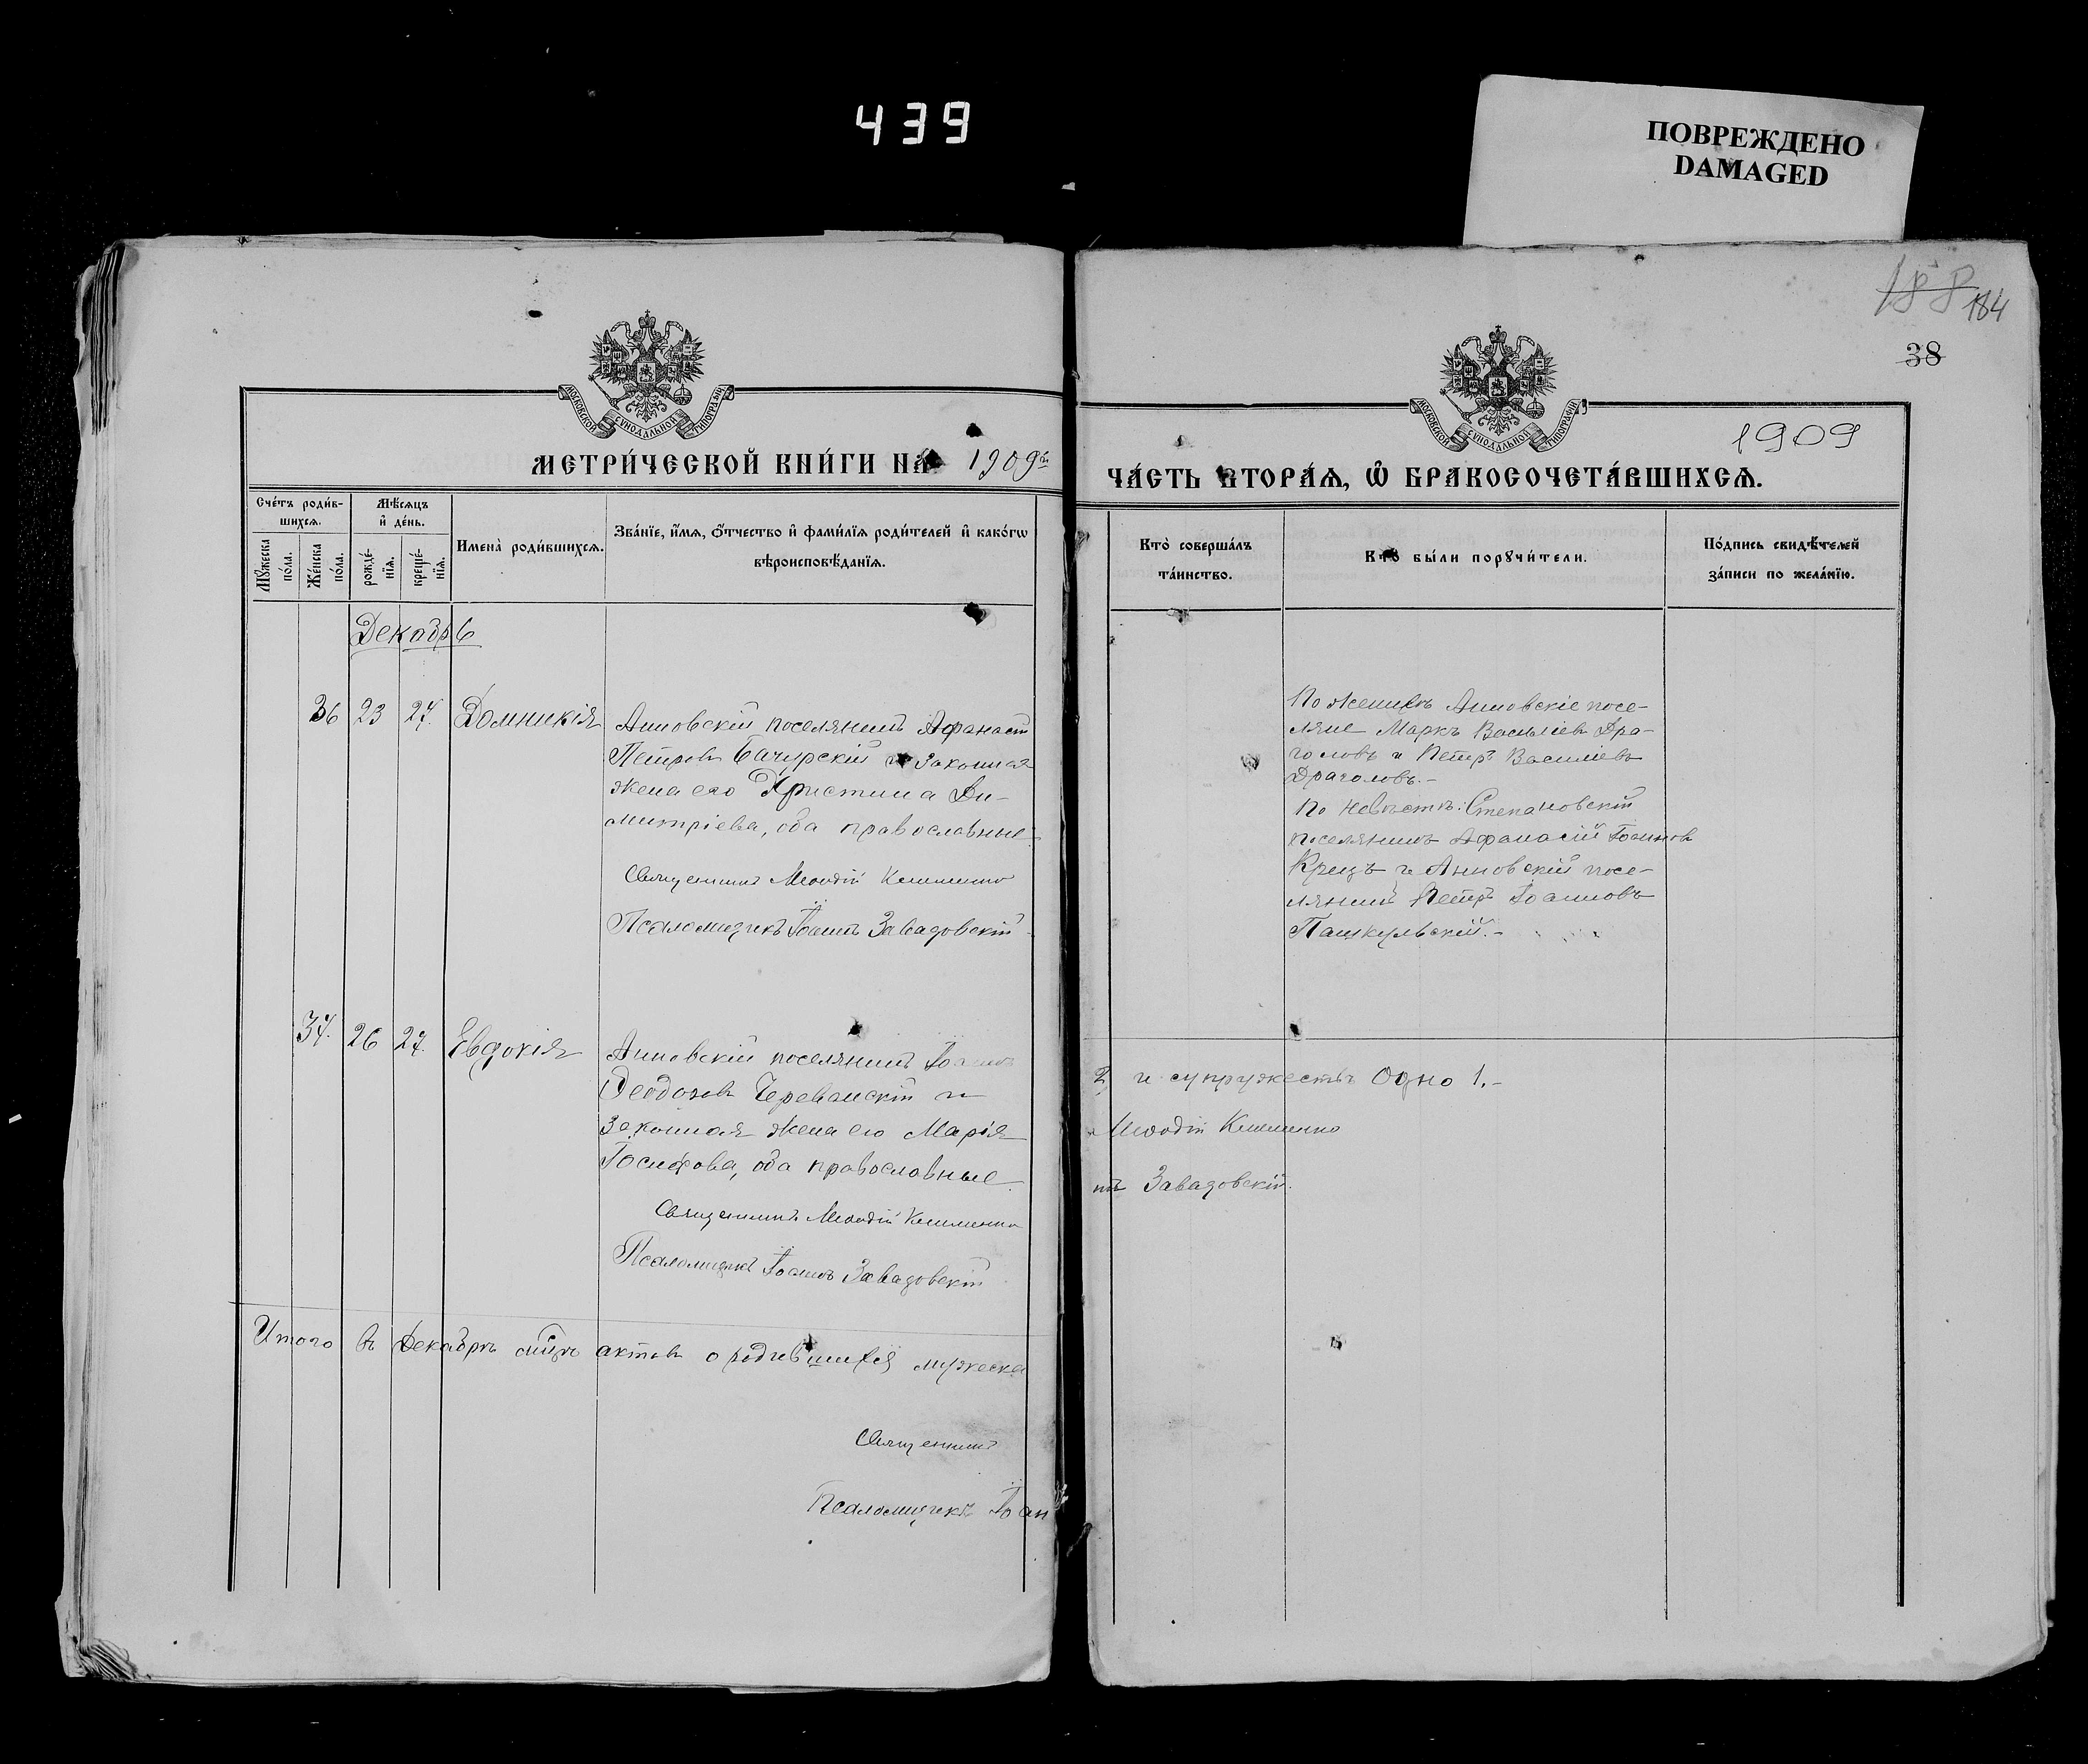 439
ПОВРЕЖДЕНО
DAMAGED
МОСКОВСКОЙ СѴНОДАЛЬНОЙ ТИПОГРАФІИ
МЕТРИ́ЧЕСКОЙ КНИ́ГИ НА 1909 г.
Сче́тъ роди́вшихсѧ.
Мѣ́сѧцъ и҆ де́нь.
Мꙋ́жеска по́ла.
Же́нска по́ла.
рожде́нїѧ.
креще́нїѧ.
Имена̀ роди́вшихсѧ.
Зва́нїе, и҆́мѧ, ѻ҆́тчество и҆ фами́лїѧ роди́телей и҆ како́гѡ
вѣроисповѣ́данїѧ.
Декабрь
36 23 27. Домникія
Анновскій поселянинъ Афанасій
Петровъ Бачурскій и законная
жена его Христина Ди-
митріева, оба православные.
Священникъ Меѳодій
Псаломщикъ Іоаннъ Завадовскій
37. 26 27. Евдокія
Анновскій поселянинъ Іоаннъ
Ѳеодозіевъ Череванскій и
законная жена его Марія
Іосифова, оба православные.
Священникъ Меѳодій
Псаломщикъ Іоаннъ Завадовскій
Итого въ Декабрѣ мцѣ актовъ о родившихся мужеска
Священникъ
Псаломщикъ Іоан
188 184
38
МОСКОВСКОЙ СѴНОДАЛЬНОЙ ТИПОГРАФІИ
1909
ЧА́СТЬ ВТОРА́Ѧ, Ѡ҆ БРАКОСОЧЕТА́ВШИХСѦ.
Кто̀ соверша́лъ
та́инство.
Кто̀ бы́ли порꙋчи́тели.
По́дпись свидѣ́телей
за́писи по жела́нїю.
По женихѣ Анновскіе посе-
ляне Маркъ Васильевъ Дра-
головъ и Петръ Василіевъ
Драголовъ.-
По невѣстѣ: Степановскій
поселянинъ Афанасій Іоанновъ
Крецъ и Анновскій посе-
лянинъ Петръ Іоанновъ
Пашкульскій.-
2 и супружествѣ Одно 1.-
Меѳодій
нъ Завадовскій.